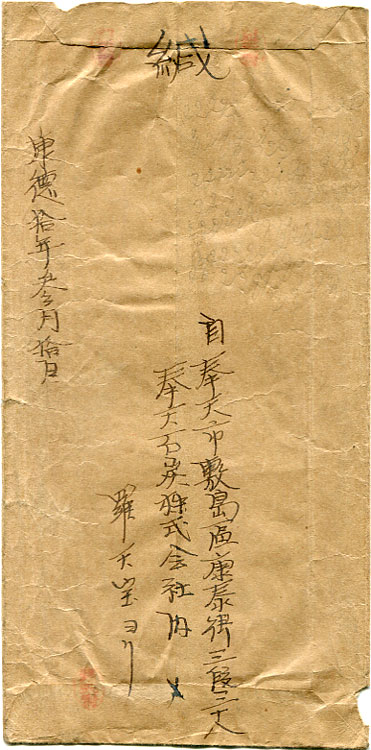 緘
自奉天市敷島區康泰街三段二八
奉天石炭株式会社内
羅天宝ヨリ
康德拾年叁月拾日